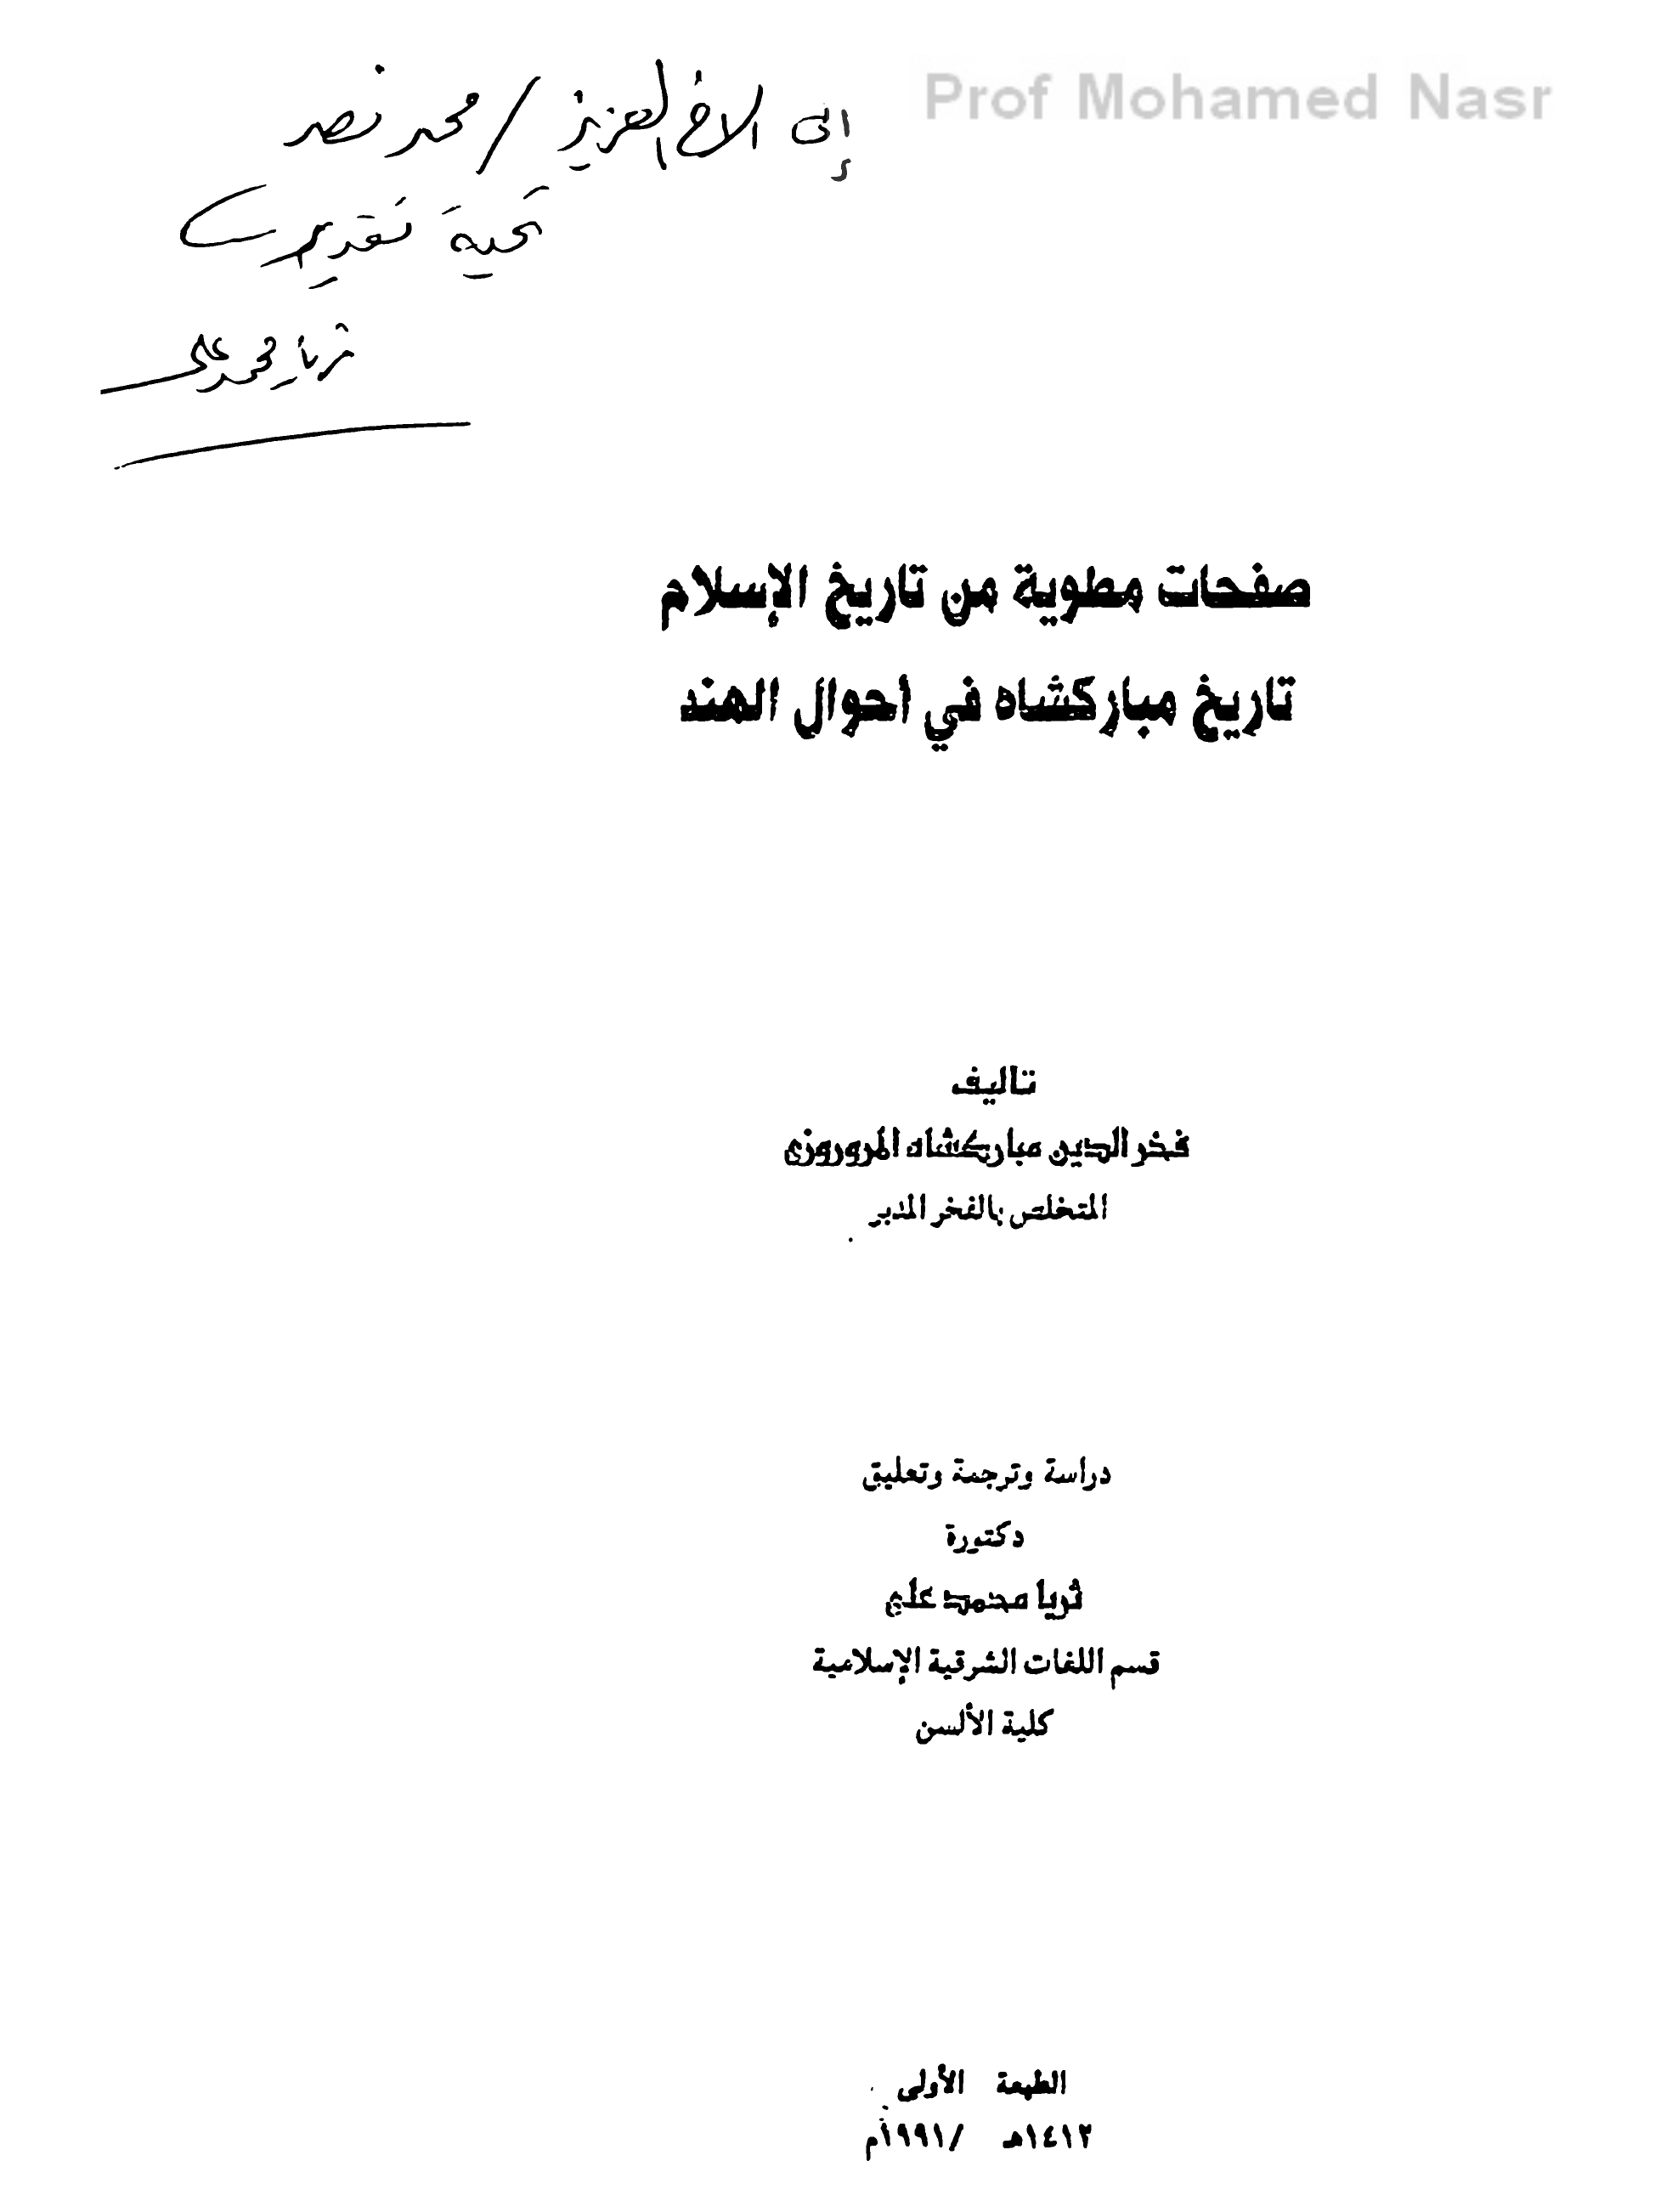 Prof Mohamed Nasr
إلى الاخ العزيز / محمد نصر
تحية تقدير
ثريا محمد على
صفحات مطوية من تاريخ الإسلام
تاريخ مباركشاه في أحوال الهند
تاليف
فخر الدين مباركشاه المروروزى
المتخلص بالفخر المدبر
دراسة وترجمة وتعليق
دكتورة
ثريا محمد علي
قسم اللغات الشرقية الإسلامية
كلية الألسن
الطبعة الأولى
١٤١٢هـ /١٩٩١م